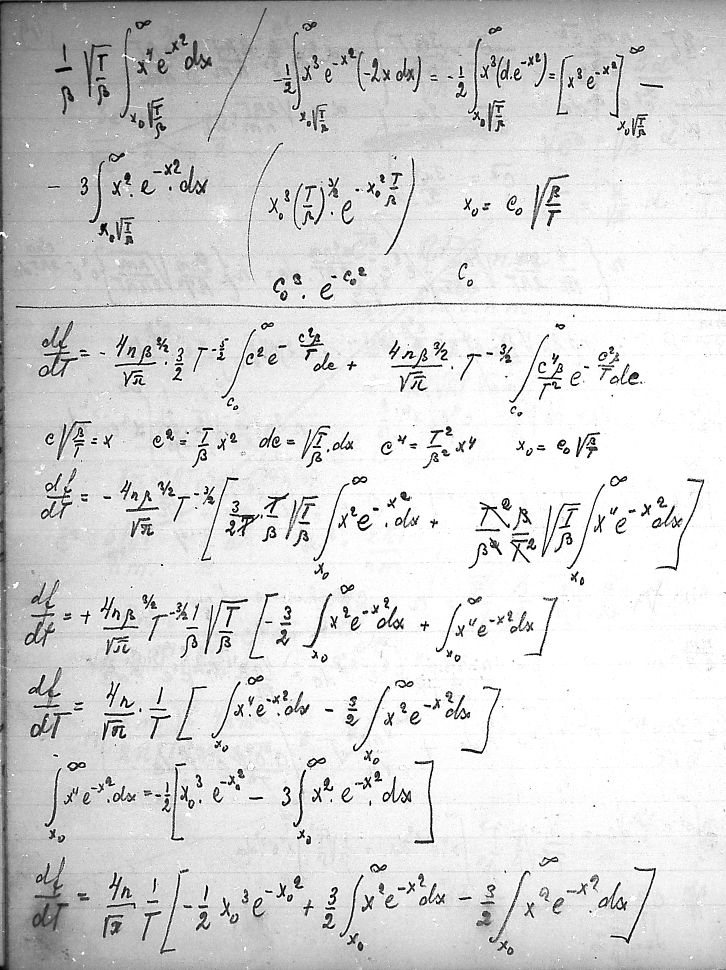 1/β √(T/β) ∫_{x₀√(T/β)}^∞ x⁴ e^{-x²} dx / -1/2 ∫_{x₀√(T/β)}^∞ x³ e^{-x²} (-2x dx) = -1/2 ∫_{x₀√(T/β)}^∞ x³ (d.e^{-x²}) = [x³ e^{-x²}]_{x₀√(T/β)}^∞ —
- 3 ∫_{x₀√(T/β)}^∞ x². e^{-x²}. dx ( x₀³ (T/β)^{3/2}. e^{-x₀² T/β} ) x₀ = c₀ √(β/T)
c₀³. e^{-c₀²} c₀
df/dT = - 4nβ^{3/2}/√π . 3/2 T^{-5/2} ∫_{c₀}^∞ c² e^{-c²β/T} dc + 4nβ^{3/2}/√π . T^{-3/2} ∫_{c₀}^∞ c⁴β/T² e^{-c²β/T} dc.
c√(β/T) = x c² = T/β x² dc = √(T/β). dx c⁴ = T²/β² x⁴ x₀ = c₀ √(β/T)
df/dT = - 4nβ^{3/2}/√π T^{-3/2} [ 3/2T . T/β √(T/β) ∫_{x₀}^∞ x² e^{-x²}. dx + T²/β² β/T² √(T/β) ∫_{x₀}^∞ x⁴ e^{-x²} dx ]
df/dt = + 4nβ^{3/2}/√π T^{-3/2} 1/β √(T/β) [ -3/2 ∫_{x₀}^∞ x² e^{-x²} dx + ∫_{x₀}^∞ x⁴ e^{-x²} dx ]
df/dT = 4n/√π . 1/T [ ∫_{x₀}^∞ x⁴. e^{-x²}. dx - 3/2 ∫_{x₀}^∞ x² e^{-x²} dx ]
∫_{x₀}^∞ x⁴ e^{-x²}. dx = -1/2 [ x₀³. e^{-x₀²} - 3 ∫_{x₀}^∞ x². e^{-x²}. dx ]
df/dT = 4n/√π 1/T [ -1/2 x₀³ e^{-x₀²} + 3/2 ∫_{x₀}^∞ x² e^{-x²} dx - 3/2 ∫_{x₀}^∞ x² e^{-x²}. dx ]